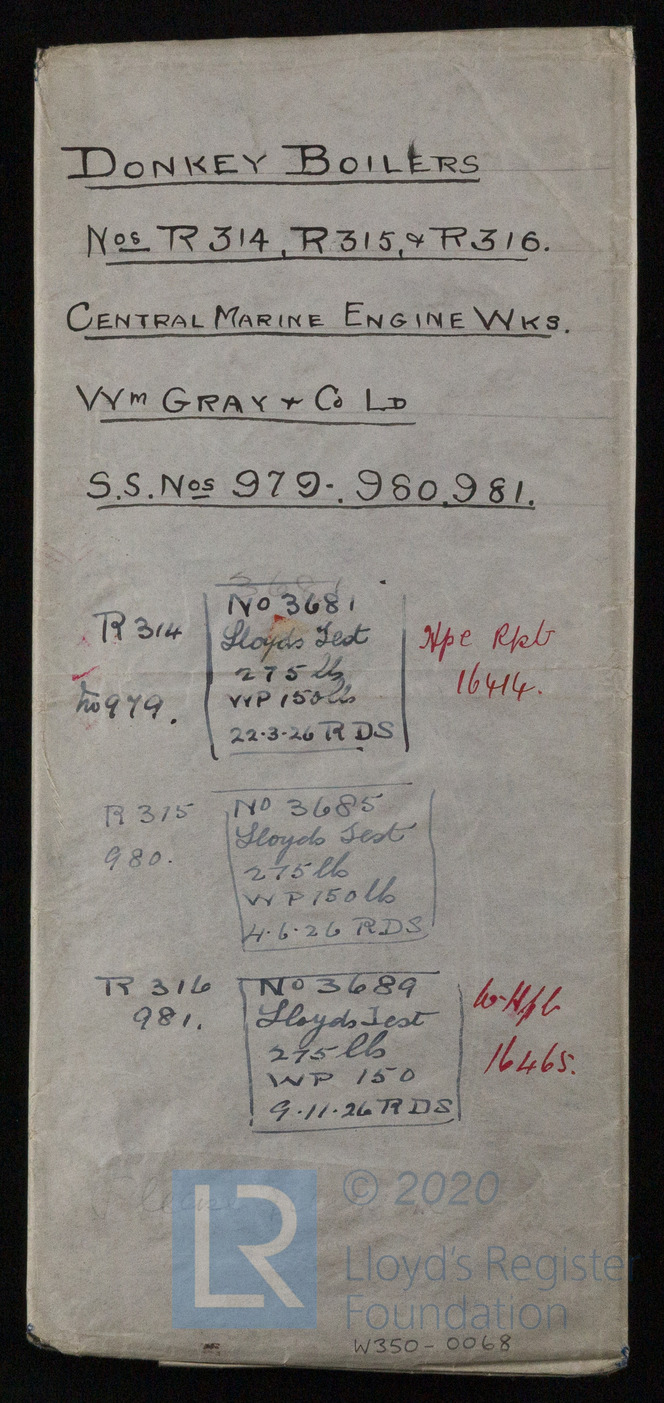 DONKEY BOILERS
Nos R 314, R 315, & R 316.
CENTRAL MARINE ENGINE WKS.
Wm GRAY & Co LD
S.S. Nos 979-, 980, 981.
3681
R 314
No 979.
No 3681
Lloyds Test
275 lb
WP 150 lb
22-3-26 RDS
Hpl Rpt
16414.
R 315
980.
No 3685
Lloyds Test
275 lb
WP 150 lb
4.6.26 RDS
R 316
981.
No 3689
Lloyds Test
275 lb
WP 150
9.11.26 RDS
W. Hpl
16465.
LR
© 2020
Lloyd's Register
Foundation
W350-0068